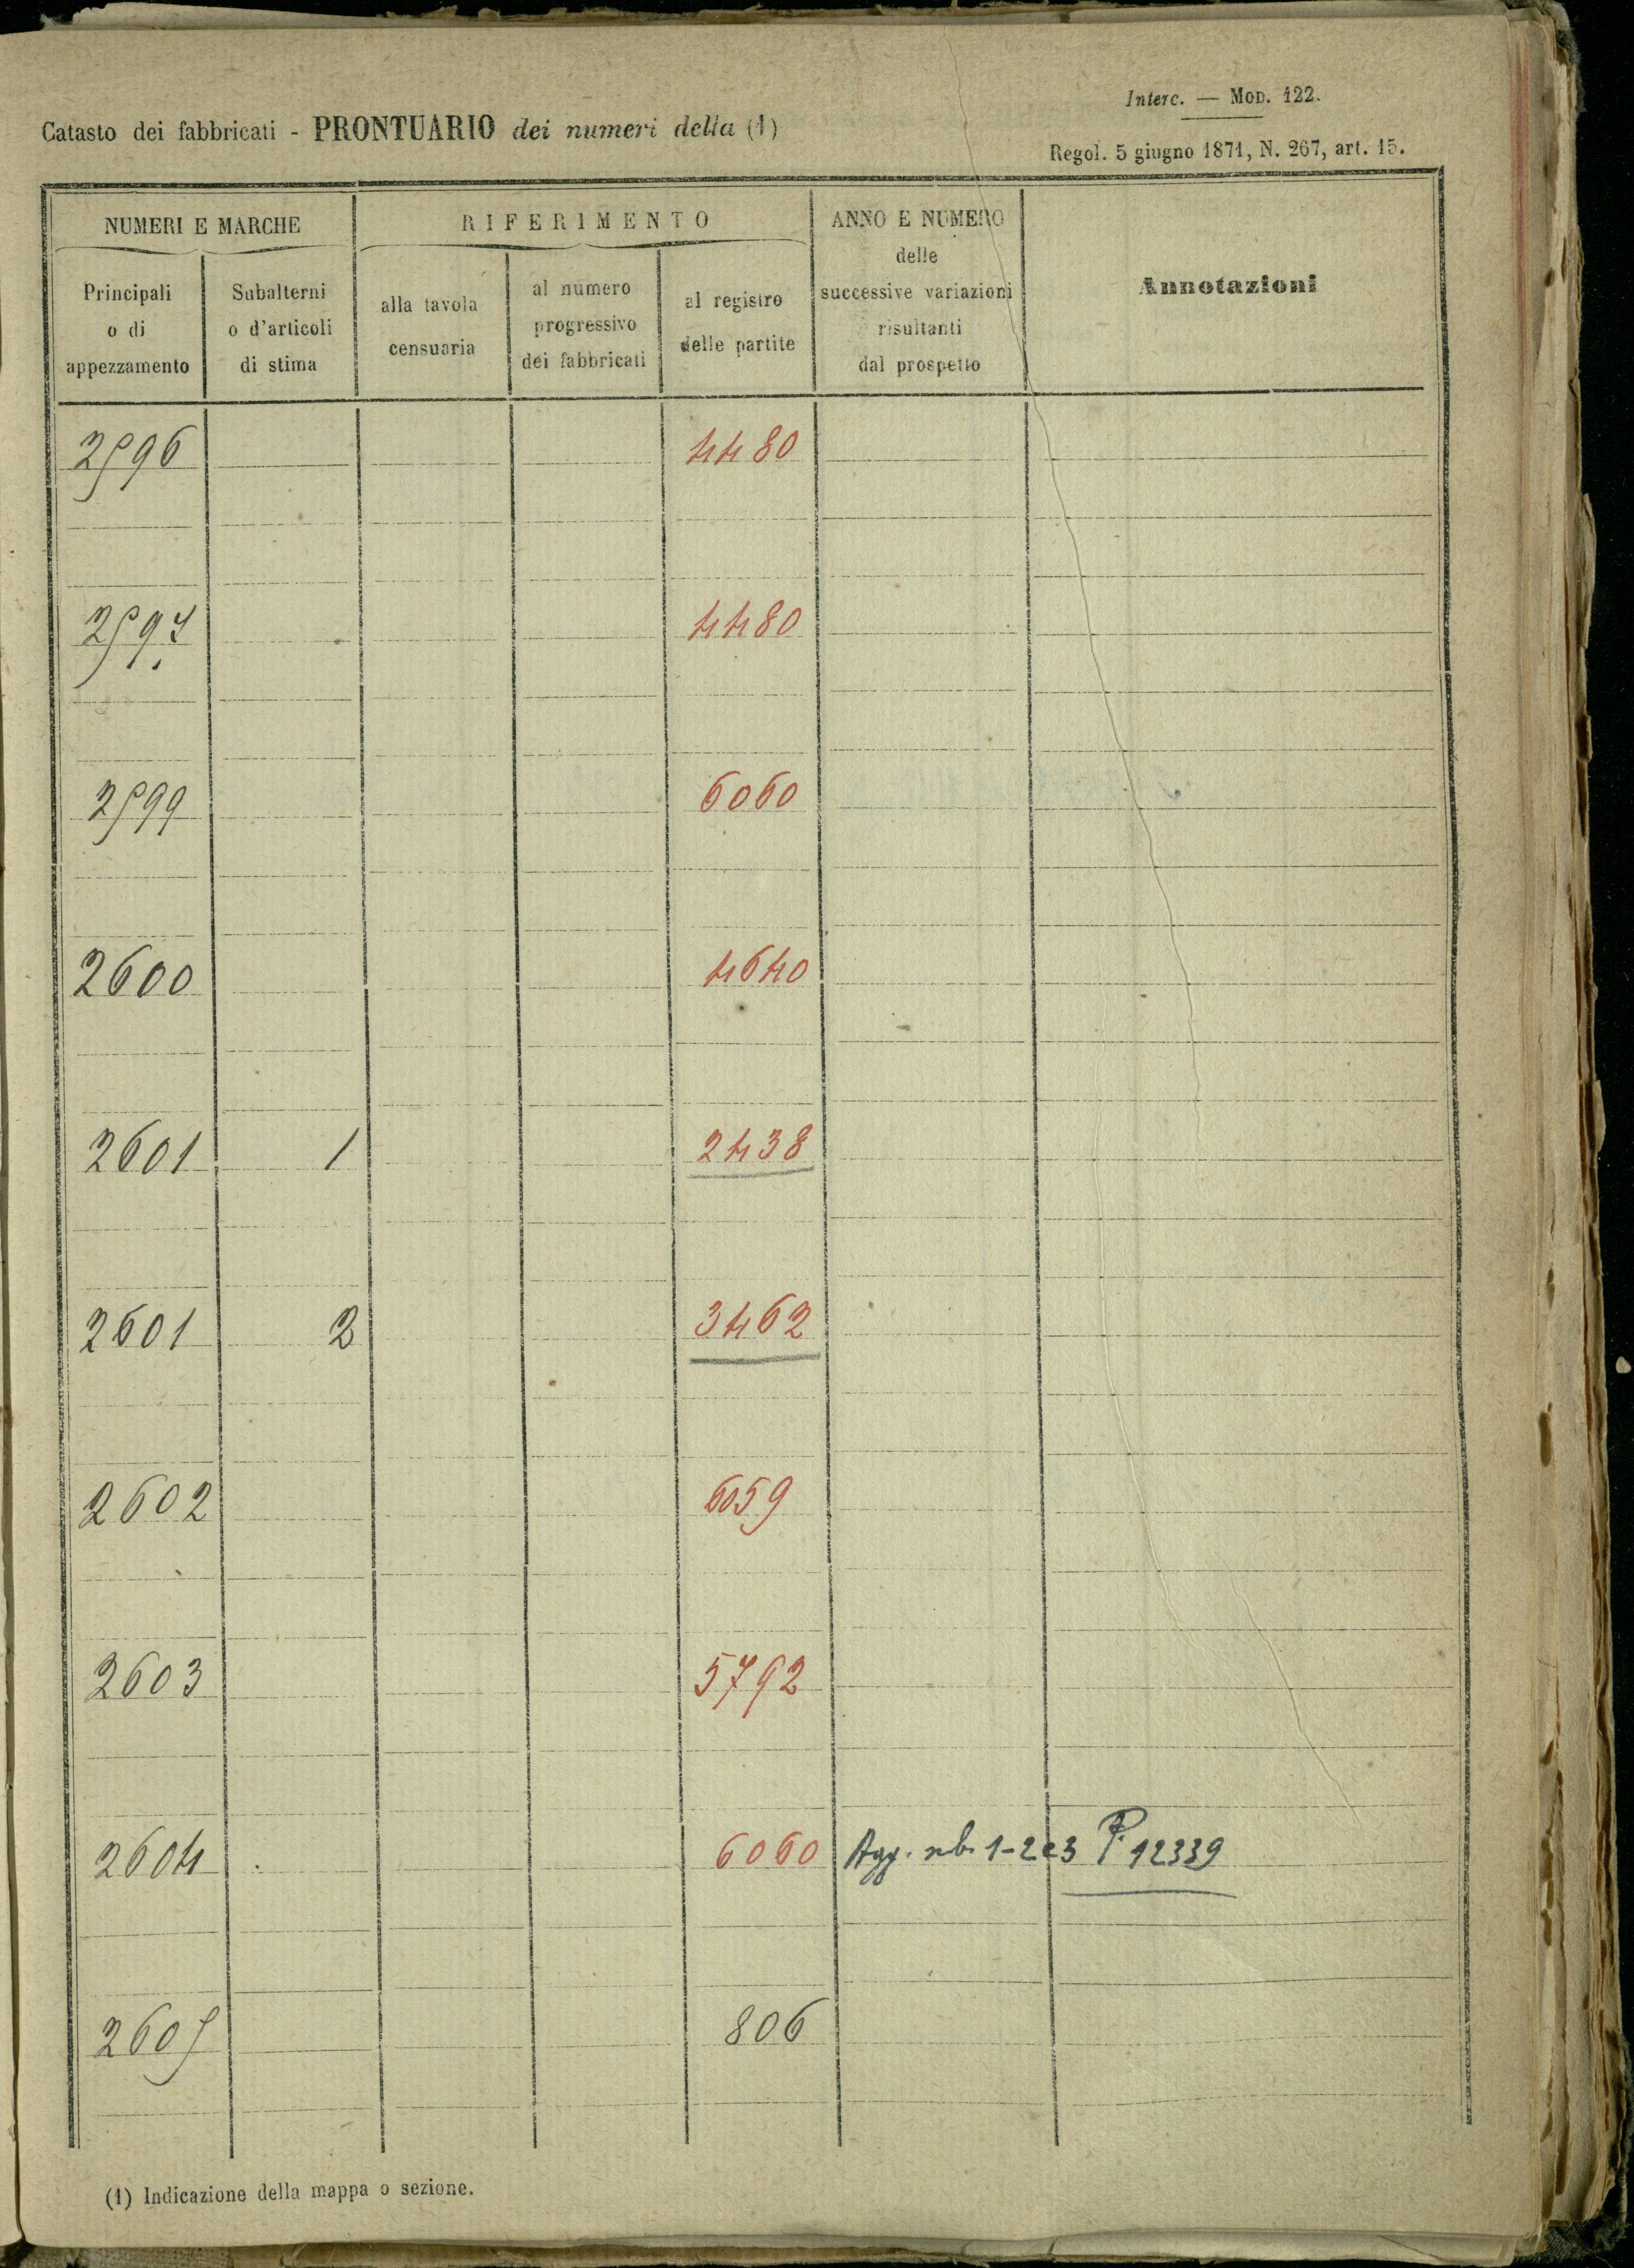 Interc. — Mod. 122.
Catasto dei fabbricati - PRONTUARIO dei numeri della (1)
Regol. 5 giugno 1871, N. 267, art. 15.
NUMERI E MARCHE
Principali
o di
appezzamento
Subalterni
o d'articoli
di stima
RIFERIMENTO
alla tavola
censuaria
al numero
progressivo
dei fabbricati
al registro
delle partite
ANNO E NUMERO
delle
successive variazioni
risultanti
dal prospetto
Annotazioni
2596 4480
2597 4480
2599 6060
2600 4640
2601 1 2438
2601 2 3462
2602 6059
2603 5792
2604 6060 Agg. sub. 1-2e3 P. 12339
2605 806
(1) Indicazione della mappa o sezione.